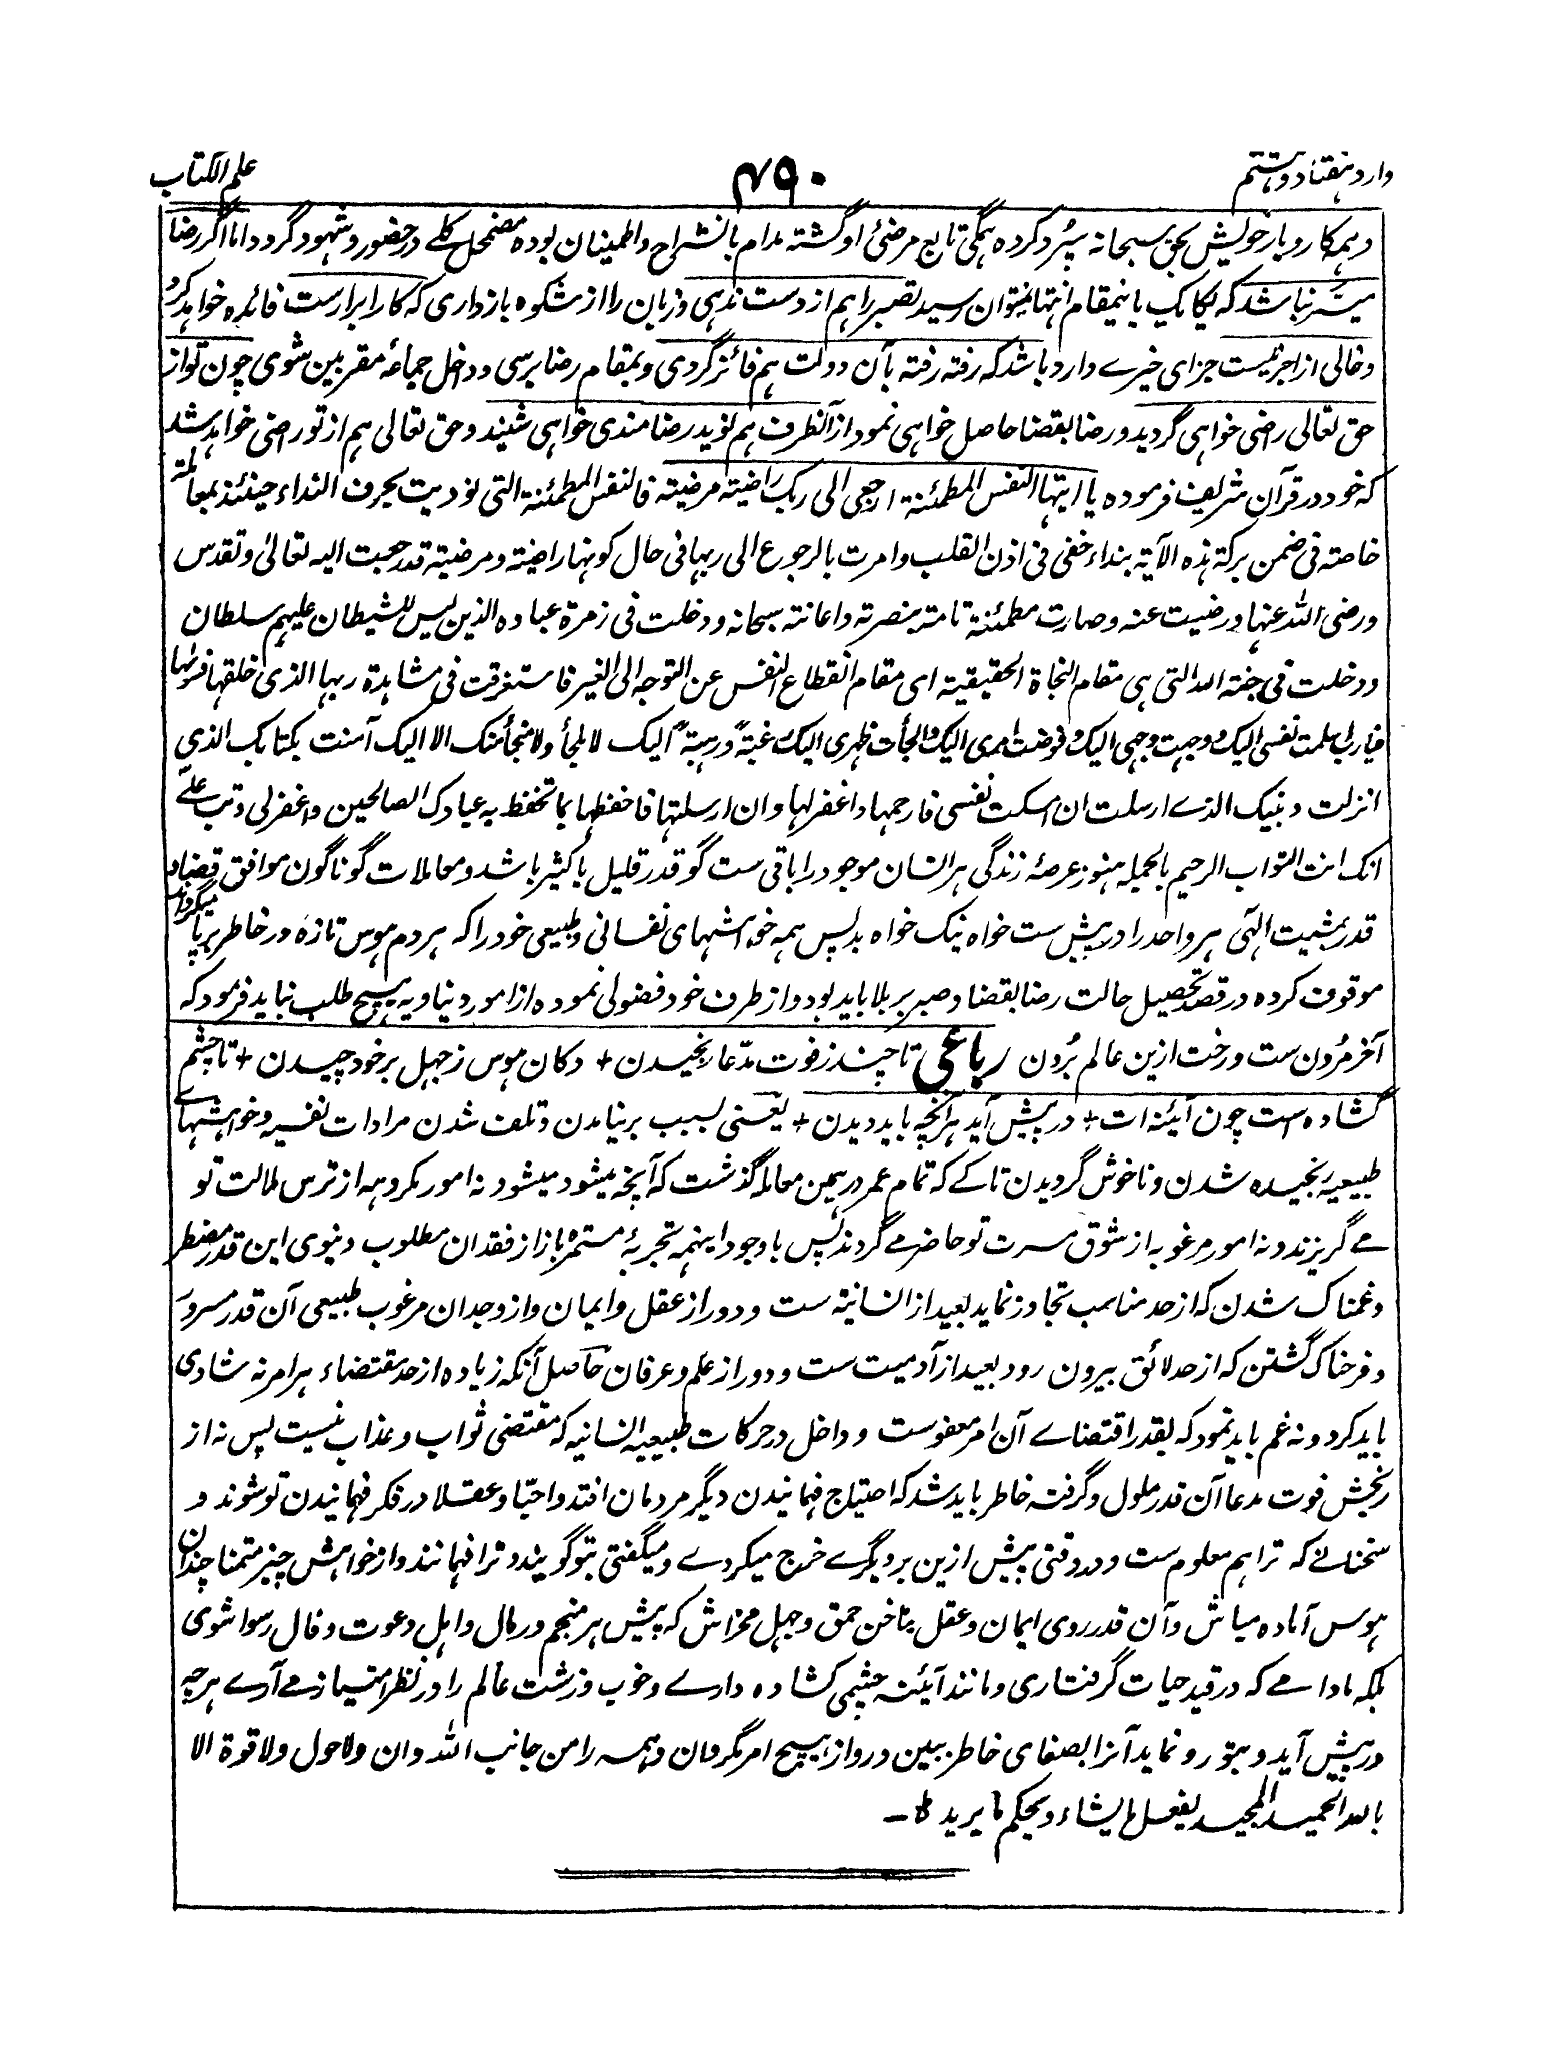 وارد هفتاد و هشتم
۴۹۰
علم الکتاب
و همه کاروبار خویش بحق سبحانه سپرد کرده همگی تابع مرضیٔ او گشته مدام بانشراح و اطمینان بوده مضمحل کلے در حضور و شهود گردد و اما اگر رضا
میسر نباشد که یکایک باینمقام انتها نمیتوان رسید تصبر را هم از دست ندهی و زبان را از شکوه بازداری که کار ابرارست فائده خواهد کرد
و خالی از اجر نیست جزای خیرے دارد باشد که رفته رفته بآن دولت هم فائز گردی و بمقام رضا برسی و داخل جماعهٔ مقربین شوی چون تو از
حق تعالی راضی خواهی گردید و رضا بقضا حاصل خواهی نمود از آنطرف هم نوید رضامندی خواهی شنید و حق تعالی هم از تو راضی خواهد شد
که خود در قرآن شریف فرموده یا ایتها النفس المطمئنة ارجعی الی ربک راضیة مرضیة فالنفس المطمئنة التی نودیت بحرف النداء حینئذ بمعاملة
خاصة فی ضمن برکة هذه الآیة بنداء خفی فی اذن القلب و امرت بالرجوع الی ربها فی حال کونها راضیة و مرضیة قد رجعت الیه تعالیٰ و تقدس
و رضی الله عنها و رضیت عنه و صارت مطمئنة تامة بنصرته و اعانته سبحانه و دخلت فی زمرة عباده الذین لیس للشیطان علیهم سلطان
و دخلت فی جنة الله التی هی مقام النجاة الحقیقیة ای مقام انقطاع النفس عن التوجه الی الغیر فاستغرقت فی مشاهدة ربها الذی خلقها فسوّٰها
فیارب اسلمت نفسی الیک و وجهت وجهی الیک و فوضت امری الیک و الجأت ظهری الیک رغبةً و رهبةً الیک لا ملجأ و لا منجأ منک الا الیک آمنت بکتابک الذی
انزلت و نبیک الذے ارسلت ان امسکت نفسی فارحمها و اغفر لها و ان ارسلتها فاحفظها بما تحفظ به عبادک الصالحین و اغفر لی و تب علےّ
انک انت التواب الرحیم بالجمله هنوز عرصهٔ زندگی هر انسان موجود را باقی ست گو قدر قلیل یا کثیر باشد و معاملات گوناگون موافق قضا و
قدر بمشیت الٓهی هر واحد را در پیش ست خواه نیک خواه بد پس همه خواهشهای نفسانی و طبیعی خود را که هر دم هوس تازه در خاطر برپا میگرداند
موقوف کرده در قصد تحصیل حالت رضا بقضا و صبر بر بلا باید بود و از طرف خود فضولی نموده از امور دنیاویه هیچ طلب نباید فرمود که
آخر مردن ست و رخت ازین عالم بردن رباعی تا چند ز فوت مدّعا رنجیدن + دکان هوس ز جهل بر خود چیدن + تا چشم
گشاده است چون آئینه ات + در پیش آید هر آنچه باید دیدن + یعنی بسبب بر نیامدن و تلف شدن مرادات نفسیه و خواهشهاے
طبیعیه رنجیده شدن و ناخوش گردیدن تا کے که تمام عمر در همین معامله گذشت که آنچه میشود میشود نه امور مکروهه از ترس ملالت تو
مے گریزند و نه امور مرغوبه از شوق مسرت تو حاضر مے گردند پس باوجود اینهمه تجربهٔ مستمره باز از فقدان مطلوب دنیوی این قدر مضطر
و غمناک شدن که از حد مناسب تجاوز نماید بعید از انسانیة ست و دور از عقل و ایمان و از وجدان مرغوب طبیعی آن قدر مسرور
و فرحناک گشتن که از حد لائق بیرون رود بعید از آدمیت ست و دور از علم و عرفان حاصل آنکه زیاده از حد مقتضاء هر امر نه شادی
باید کرد و نه غم باید نمود که بقدر اقتضاے آن امر معفوست و داخل در حرکات طبیعیه انسانیه که مقتضی ثواب و عذاب نیست پس نه از
رنجش فوت مدعا آن قدر ملول و گرفته خاطر باید شد که احتیاج فهمانیدن دیگر مردمان افتد و احبّا و عقلا در فکر فهمانیدن تو شوند و
سخنانے که ترا هم معلوم ست و در وقتی پیش ازین بر دیگرے خرج میکردے و میگفتی بتو گویند و ترا فهمانند و از خواهش چیز متمنا چندان
هوس آماده مباش و آن قدر روی ایمان و عقل بناخن حمق و جهل مخراش که پیش هر منجم و رمال و اهل دعوت و فال رسوا شوی
بلکه مادامے که در قید حیات گرفتاری و مانند آئینه چشمی کشاده دارے و خوب و زشت عالم را در نظر امتیاز مے آرے هر چه
در پیش آید و بتو رو نماید آنرا بصفای خاطر ببین و رو از هیچ امر مگردان و همه را من جانب الله دان و لا حول و لا قوة الا
بالله الحمید المجید یفعل ما یشاء و یحکم ما یرید ۔